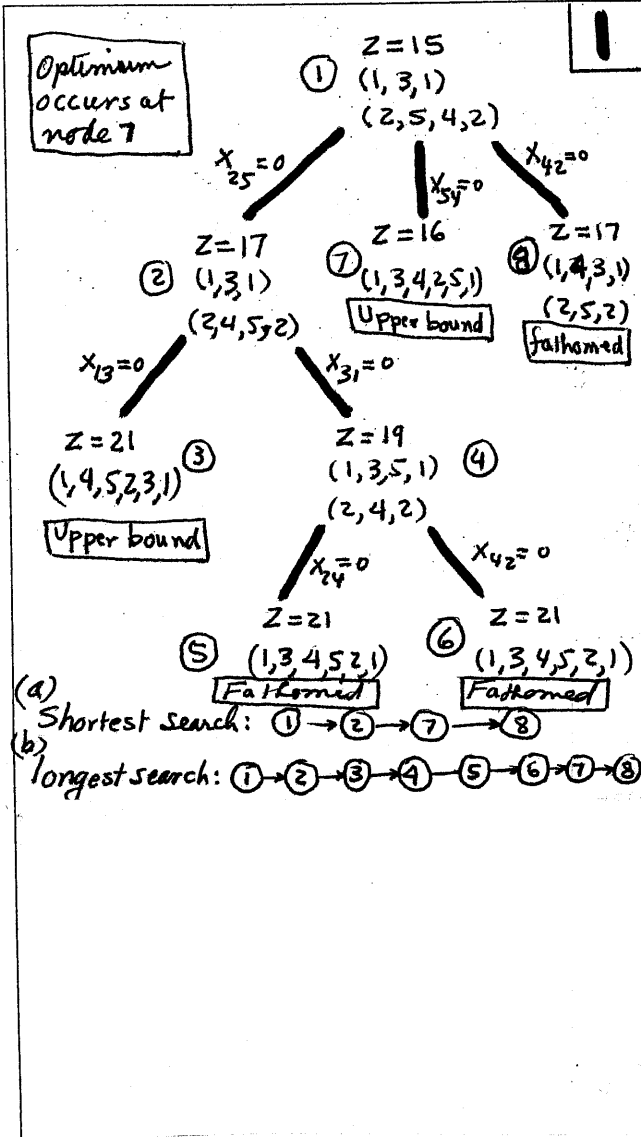 1
Optimum
occurs at
node 7
Z=15
① (1, 3, 1)
(2, 5, 4, 2)
X25=0
X54=0
X42=0
Z=17
② (1,3,1)
(2,4,5,2)
Z=16
⑦ (1,3,4,2,5,1)
Upper bound
Z=17
⑧ (1,4,3,1)
(2,5,2)
fathomed
X13=0
X31=0
Z=21 ③
(1,4,5,2,3,1)
Upper bound
Z=19
(1,3,5,1) ④
(2,4,2)
X24=0
X42=0
Z=21
⑤ (1,3,4,5,2,1)
Fathomed
Z=21
⑥ (1,3,4,5,2,1)
Fathomed
(a)
Shortest search: ①→②→⑦→⑧
(b)
longest search: ①→②→③→④—⑤→⑥→⑦→⑧